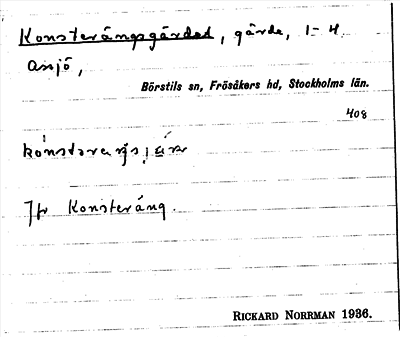 Konsterängsgärdet, gärde, 1-4
Asjö,
Börstils sn, Frösåkers hd, Stockholms län.
408
Jfr Konsteräng.
RICKARD NORRMAN 1936.